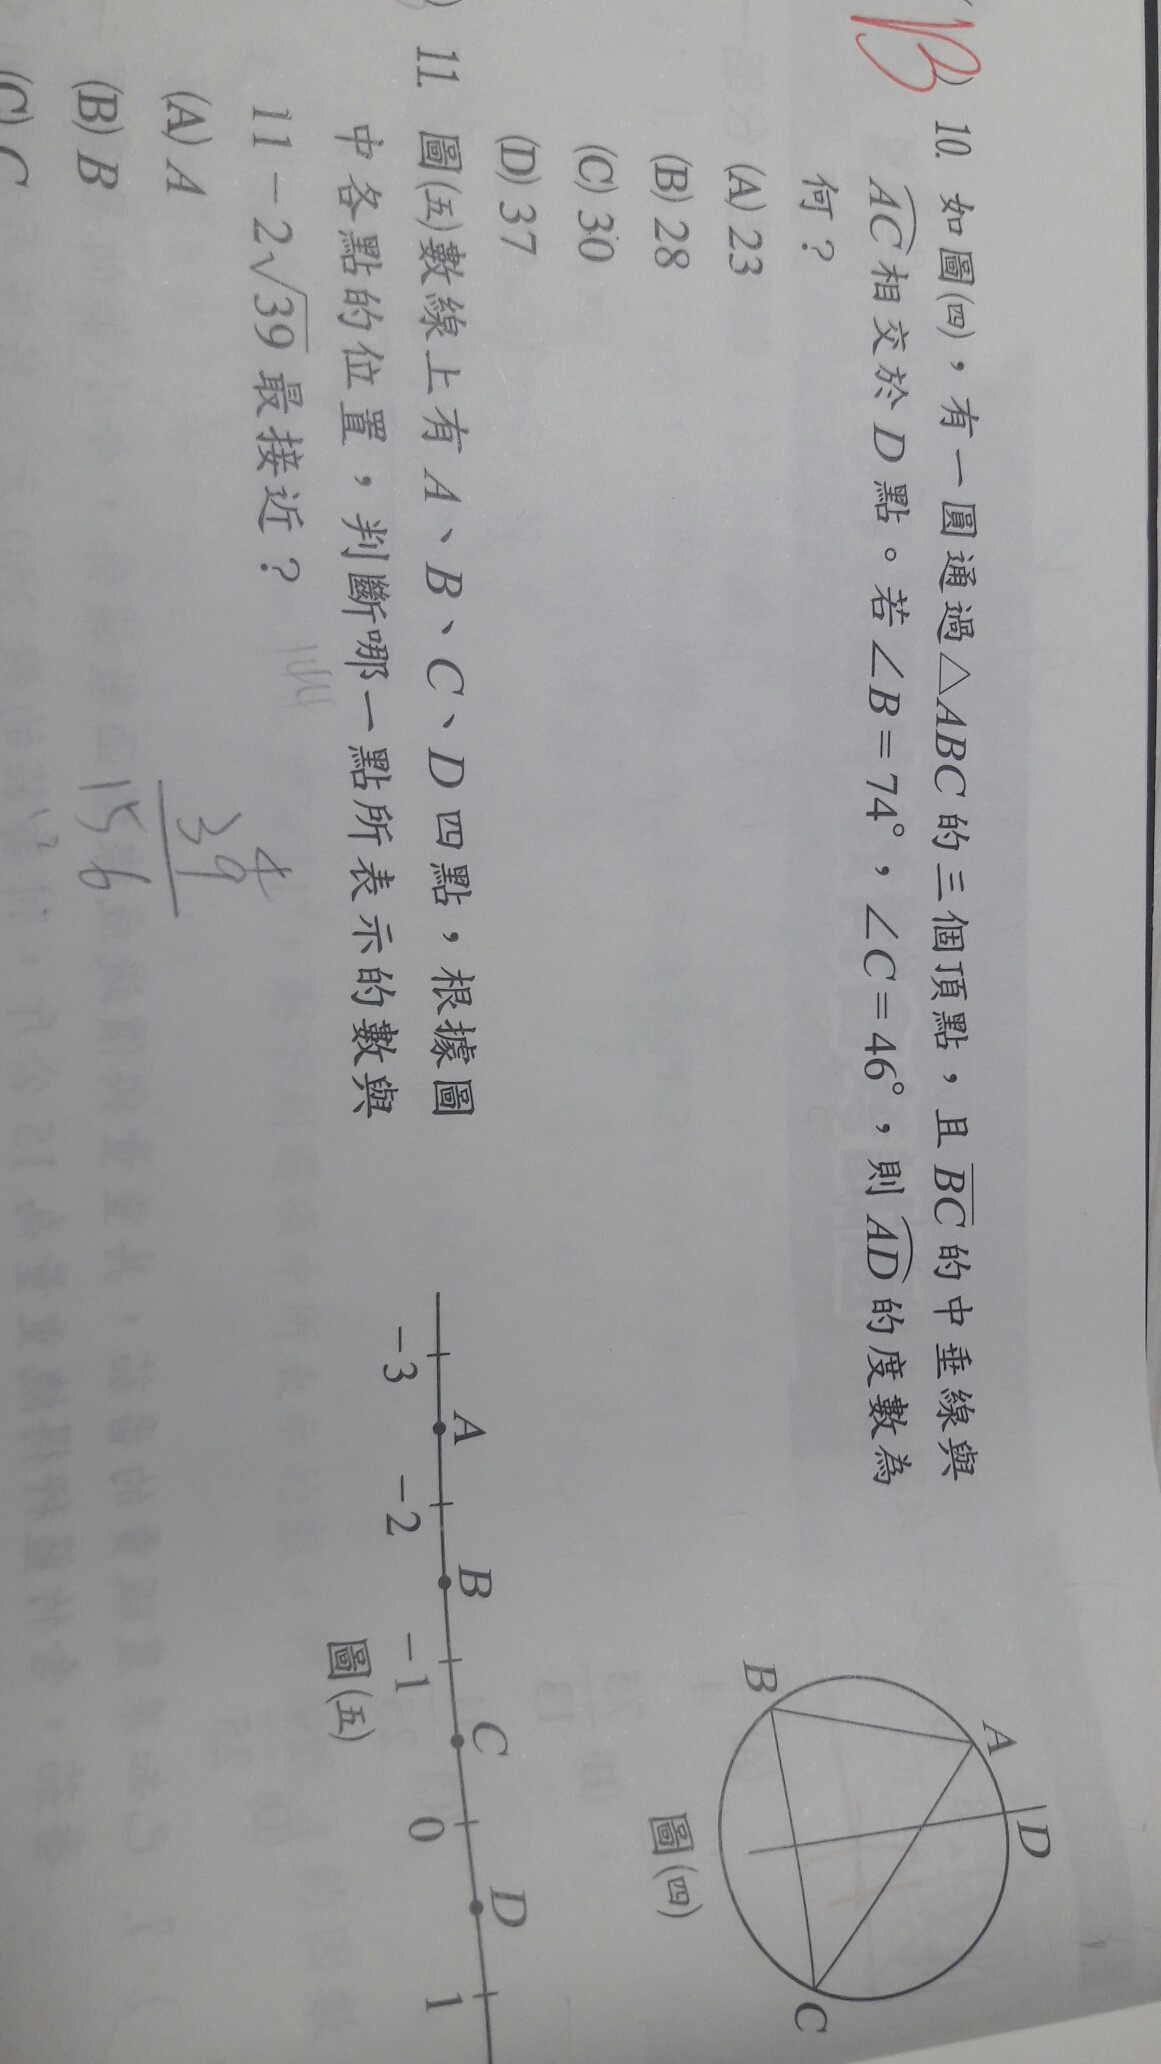 B ) 10. 如圖(四)，有一圓通過△ABC的三個頂點，且BC的中垂線與
AC相交於D點。若∠B=74°，∠C=46°，則AD的度數為
何？
(A) 23
(B) 28
(C) 30
(D) 37
A
D
B
C
圖(四)
) 11. 圖(五)數線上有A、B、C、D四點，根據圖
中各點的位置，判斷哪一點所表示的數與
11－2√39最接近？
(A) A
(B) B
(C) C
A B C D
−3 −2 −1 0 1
圖(五)
4
39
156